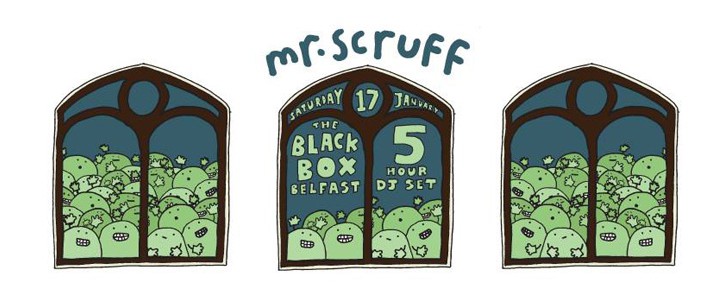 mr.scruff
SATURDAY 17 JANUARY
THE
BLACK
BOX
BELFAST
5
HOUR
DJ SET